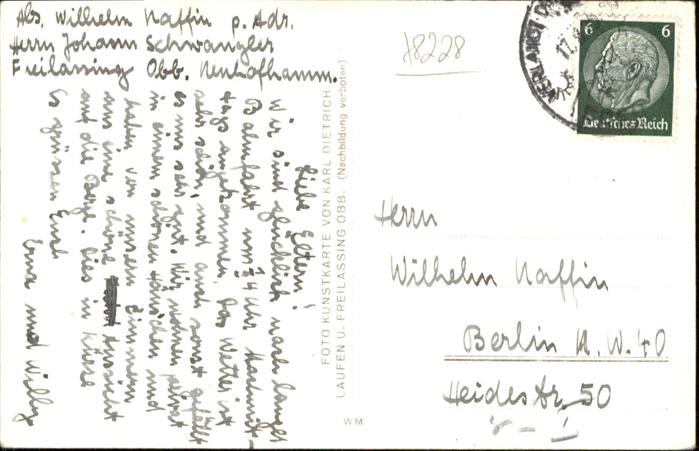 Abs. Wilhelm Naffin p. Adr.
Herrn Johann Schwangler
Freilassing Obb. Neuhofhamm.
Liebe Eltern!
Wir sind glücklich nach langer
Bahnfahrt um 1/4 4 Uhr Nachmit-
tags angekommen. Das Wetter ist
sehr schön, und auch sonst gefällt
es uns sehr gut. Wir wohnen jetzt
in einem schönen Häuschen und
haben von unserm Zimmer
aus eine schöne Aussicht
auf die Berge. Dies in Kürze
Es grüssen Euch
Erna und Willy
FOTO KUNSTKARTE VON KARL DIETRICH
LAUFEN U. FREILASSING OBB. (Nachbildung verboten)
WM
78228
VERLANGT
17.
6 6
Deutsches Reich
Herrn
Wilhelm Naffin
Berlin N.W. 40
Heidestr. 50